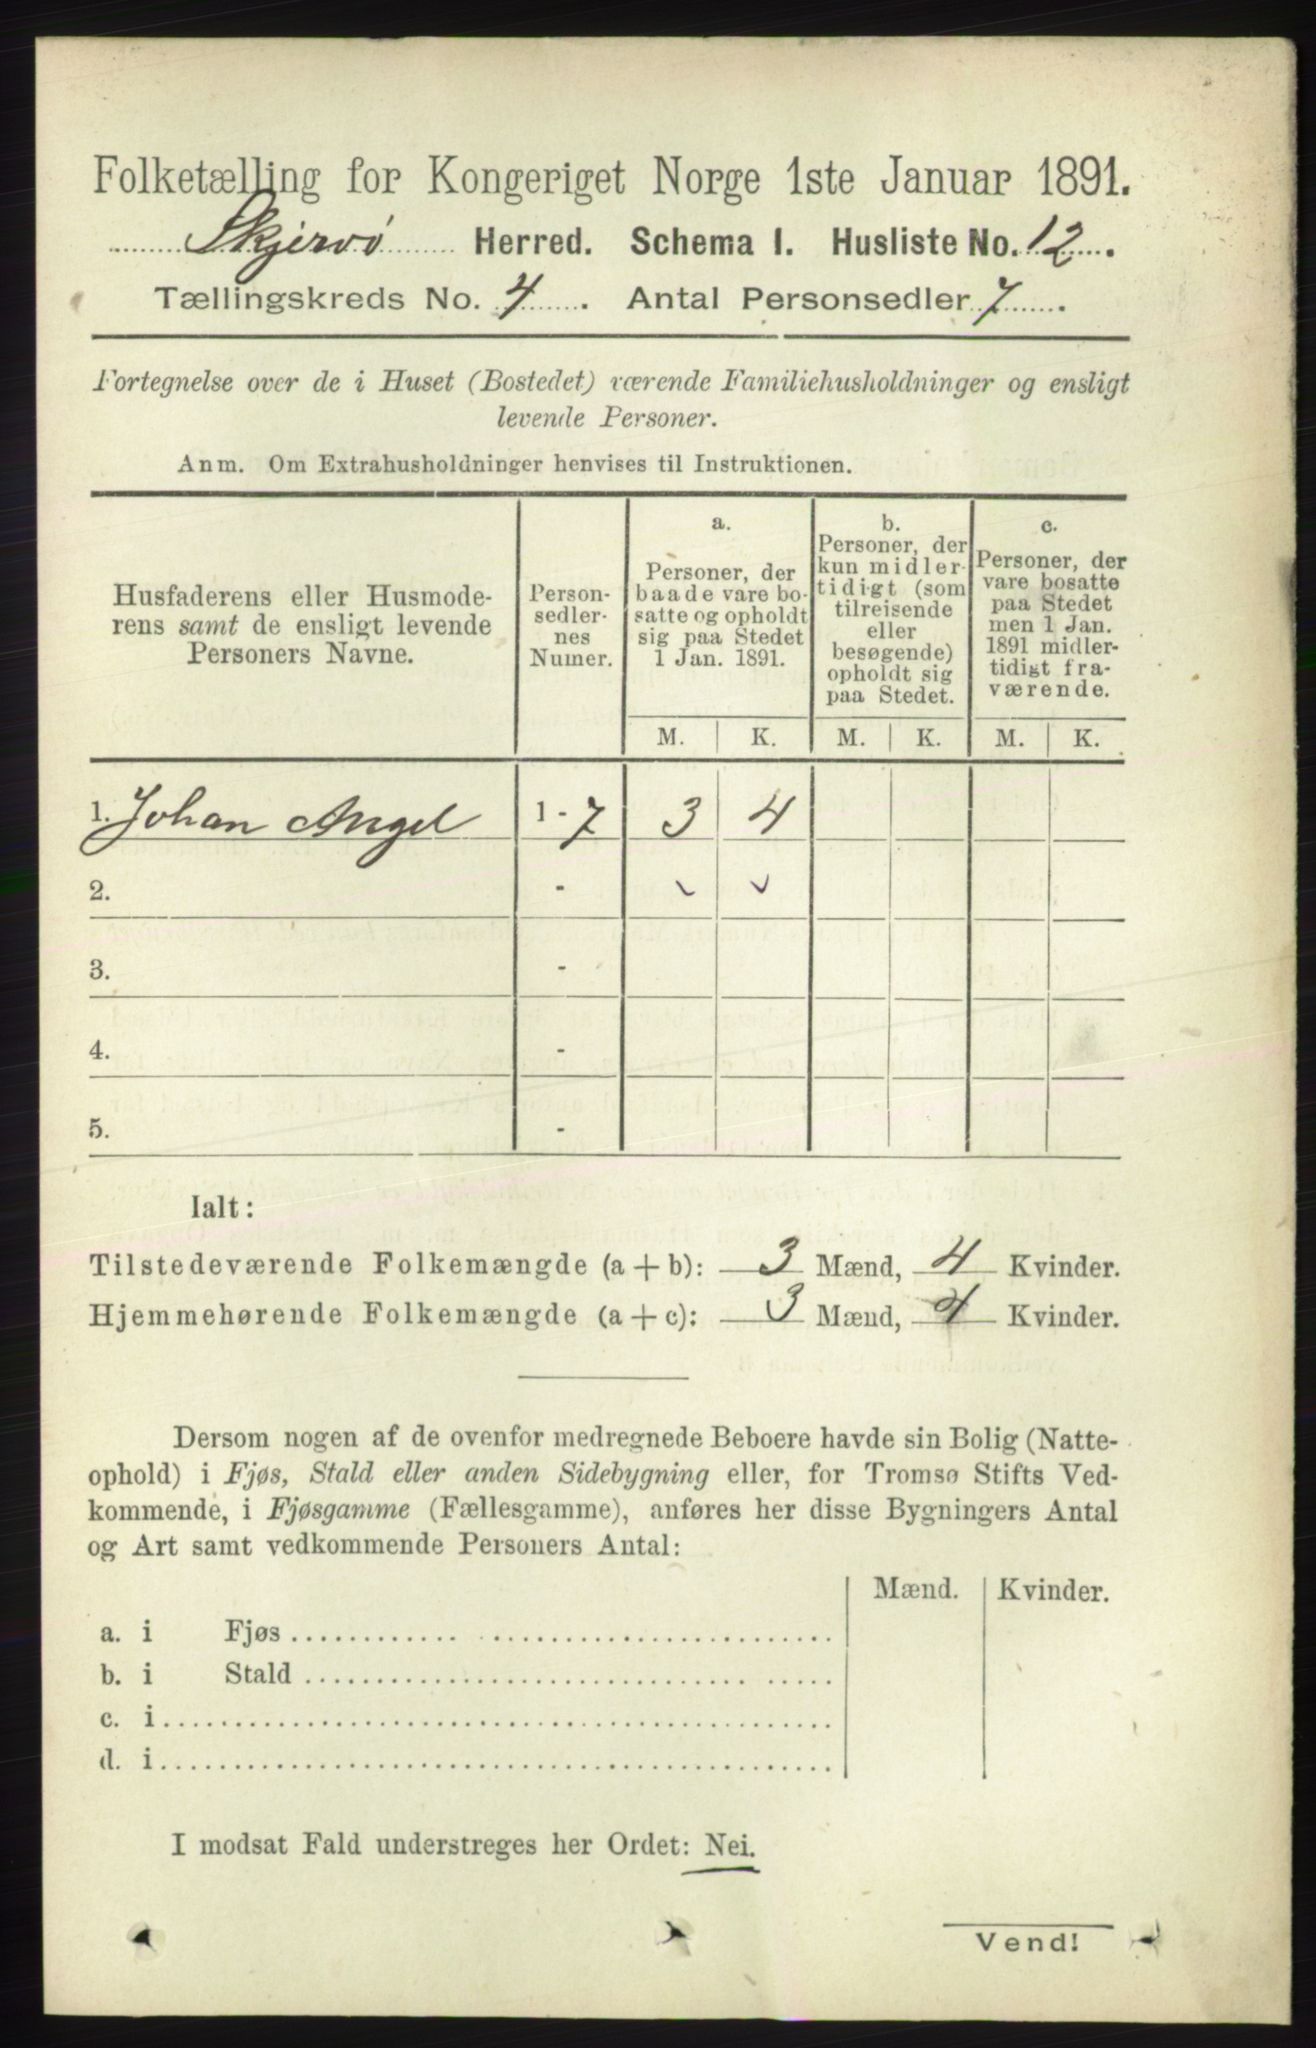 Folketælling for Kongeriget Norge 1ste Januar 1891.
Skjervö Herred. Schema I. Husliste No. 12.
Tællingskreds No. 4. Antal Personsedler 7.
Fortegnelse over de i Huset (Bostedet) værende Familiehusholdninger og ensligt
levende Personer.
Anm. Om Extrahusholdninger henvises til Instruktionen.
Husfaderens eller Husmode-
rens samt de ensligt levende
Personers Navne.
Person-
sedler-
nes
Numer.
a.
Personer, der
baade vare bo-
satte og opholdt
sig paa Stedet
1 Jan. 1891.
b.
Personer, der
kun midler-
tidigt (som
tilreisende
eller
besøgende)
opholdt sig
paa Stedet.
c.
Personer, der
vare bosatte
paa Stedet
men 1 Jan.
1891 midler-
tidigt fra-
værende.
M. K. M. K. M. K.
1. Johan Angel 1 - 7 3 4
2. -
3. -
4. -
5. -
Ialt:
Tilstedeværende Folkemængde (a + b): 3 Mænd, 4 Kvinder.
Hjemmehørende Folkemængde (a + c): 3 Mænd, 4 Kvinder.
Dersom nogen af de ovenfor medregnede Beboere havde sin Bolig (Natte-
ophold) i Fjøs, Stald eller anden Sidebygning eller, for Tromsø Stifts Ved-
kommende, i Fjøsgamme (Fællesgamme), anføres her disse Bygningers Antal
og Art samt vedkommende Personers Antal:
Mænd. Kvinder.
a. i Fjøs
b. i Stald
c. i
d. i
I modsat Fald understreges her Ordet: Nei.
Vend!